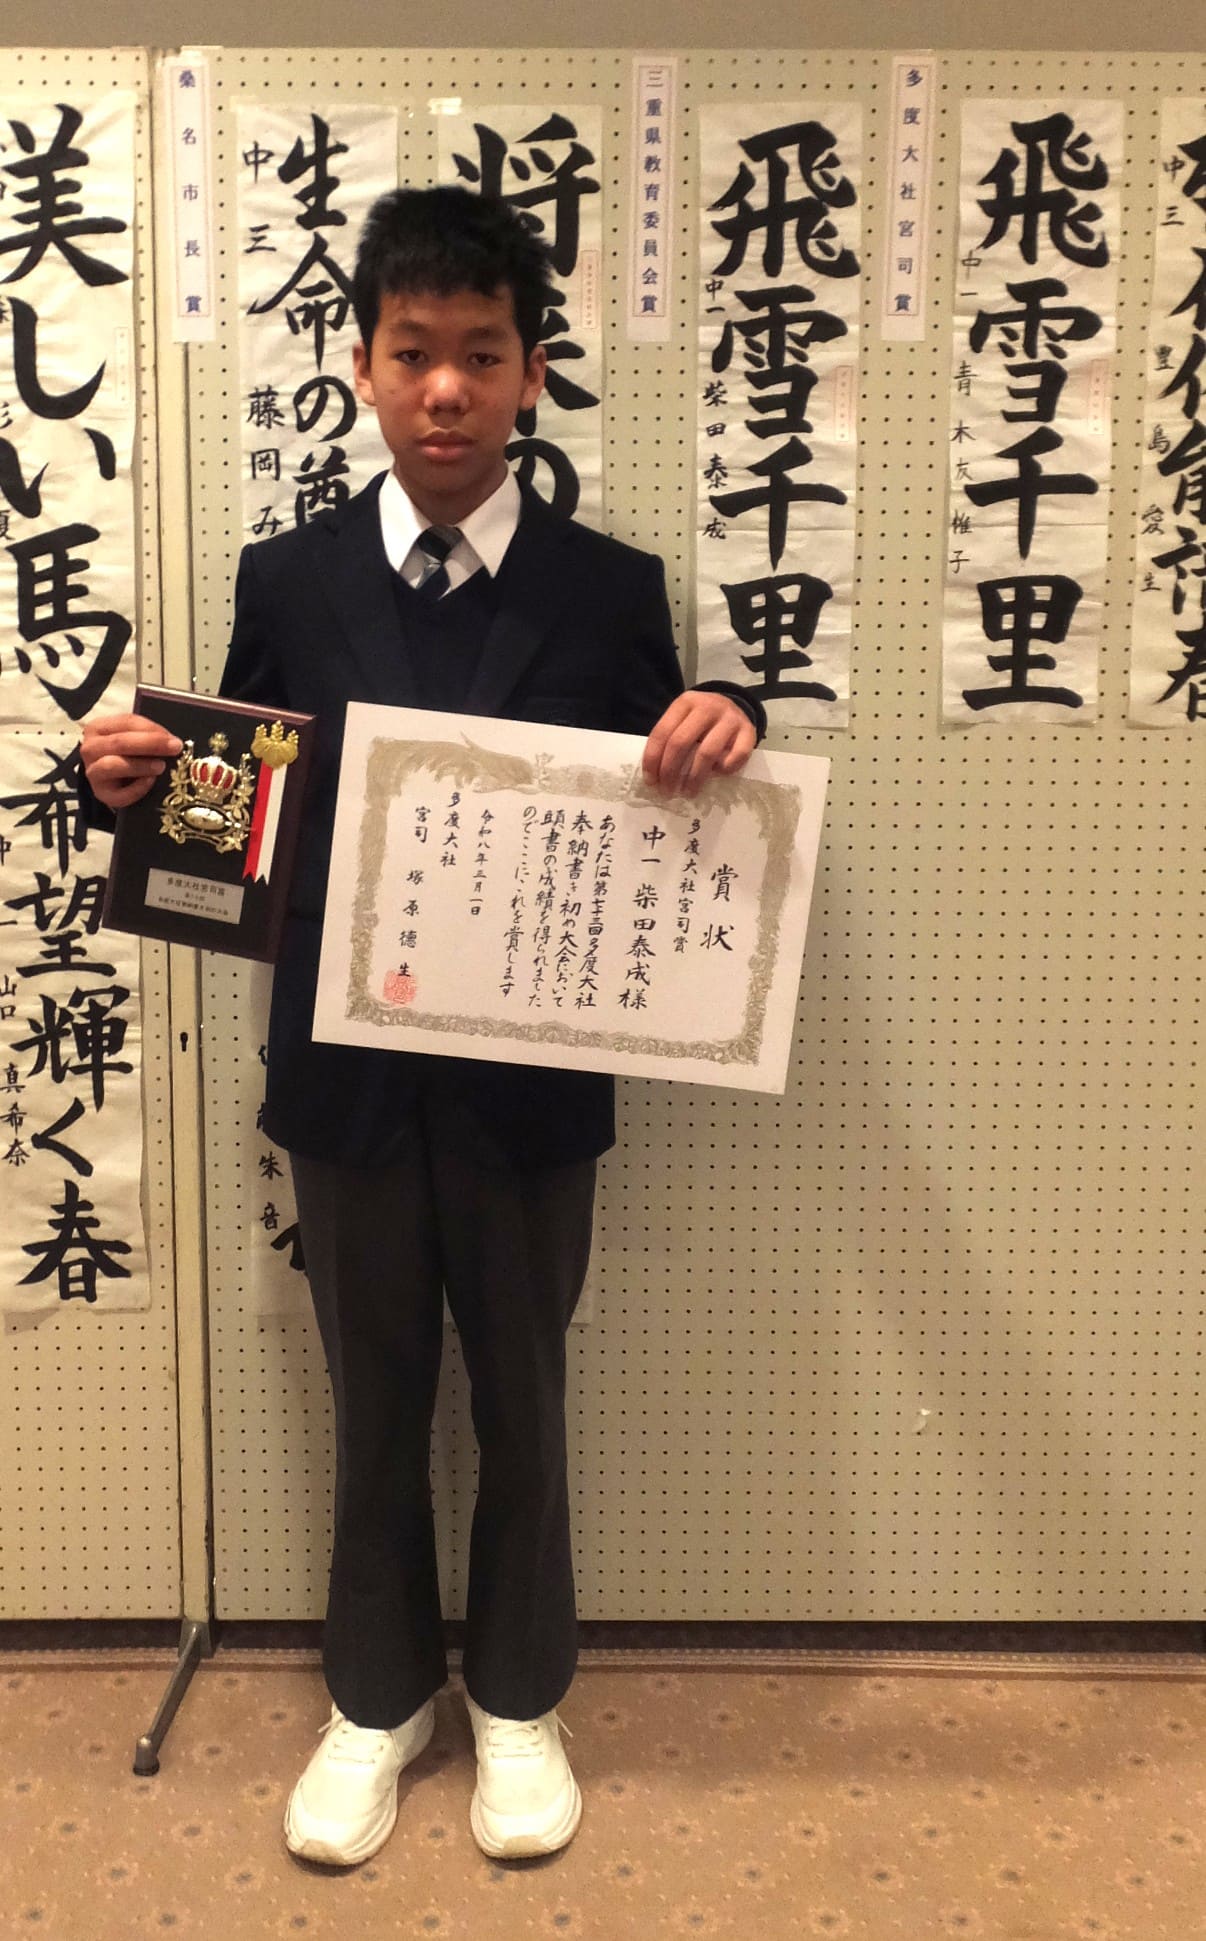 桑名市長賞
三重県教育委員会賞
多度大社宮司賞
飛雪千里
中一 青木友椎子
飛雪千里
中一 柴田泰成
将来の
生命の尊
中三 藤岡み
美しい馬
希望輝く春
山口真希奈
中三 豊島愛生
朱音
賞状
多度大社宮司賞
中一 柴田泰成様
あなたは第七十三回多度大社
奉納書き初め大会において
頭書の成績を得られました
のでここにこれを賞します
令和八年三月一日
多度大社
宮司 塚原徳生
多度大社宮司賞